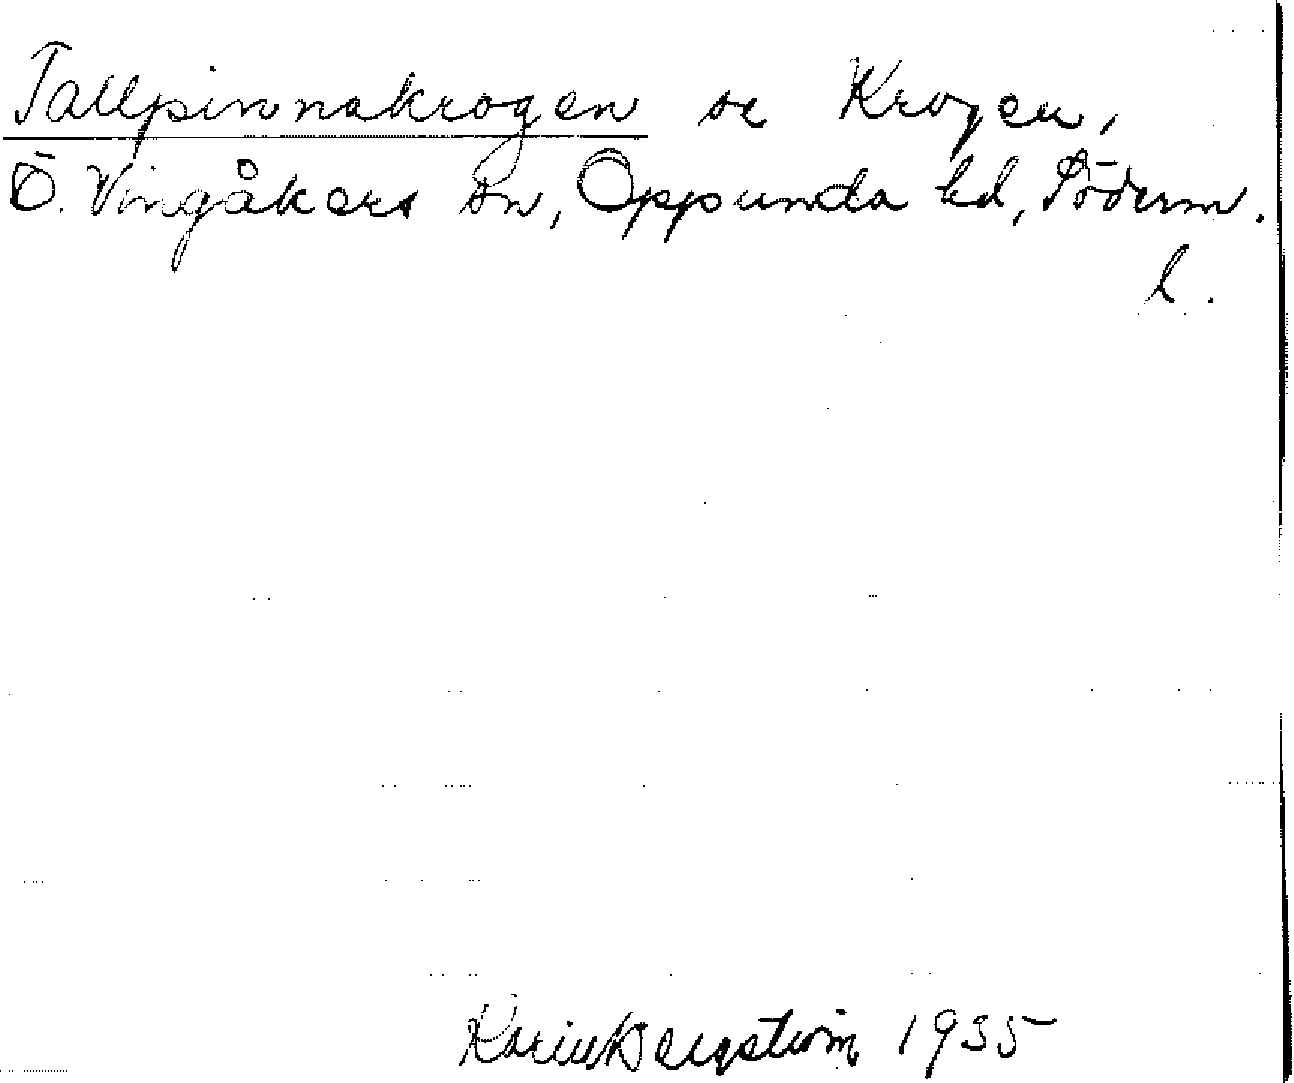 Tallpinnakrogen se Krogen,
Ö. Vingåkers sn, Oppunda hd, Söderm.
l.
Karin Bergström 1935